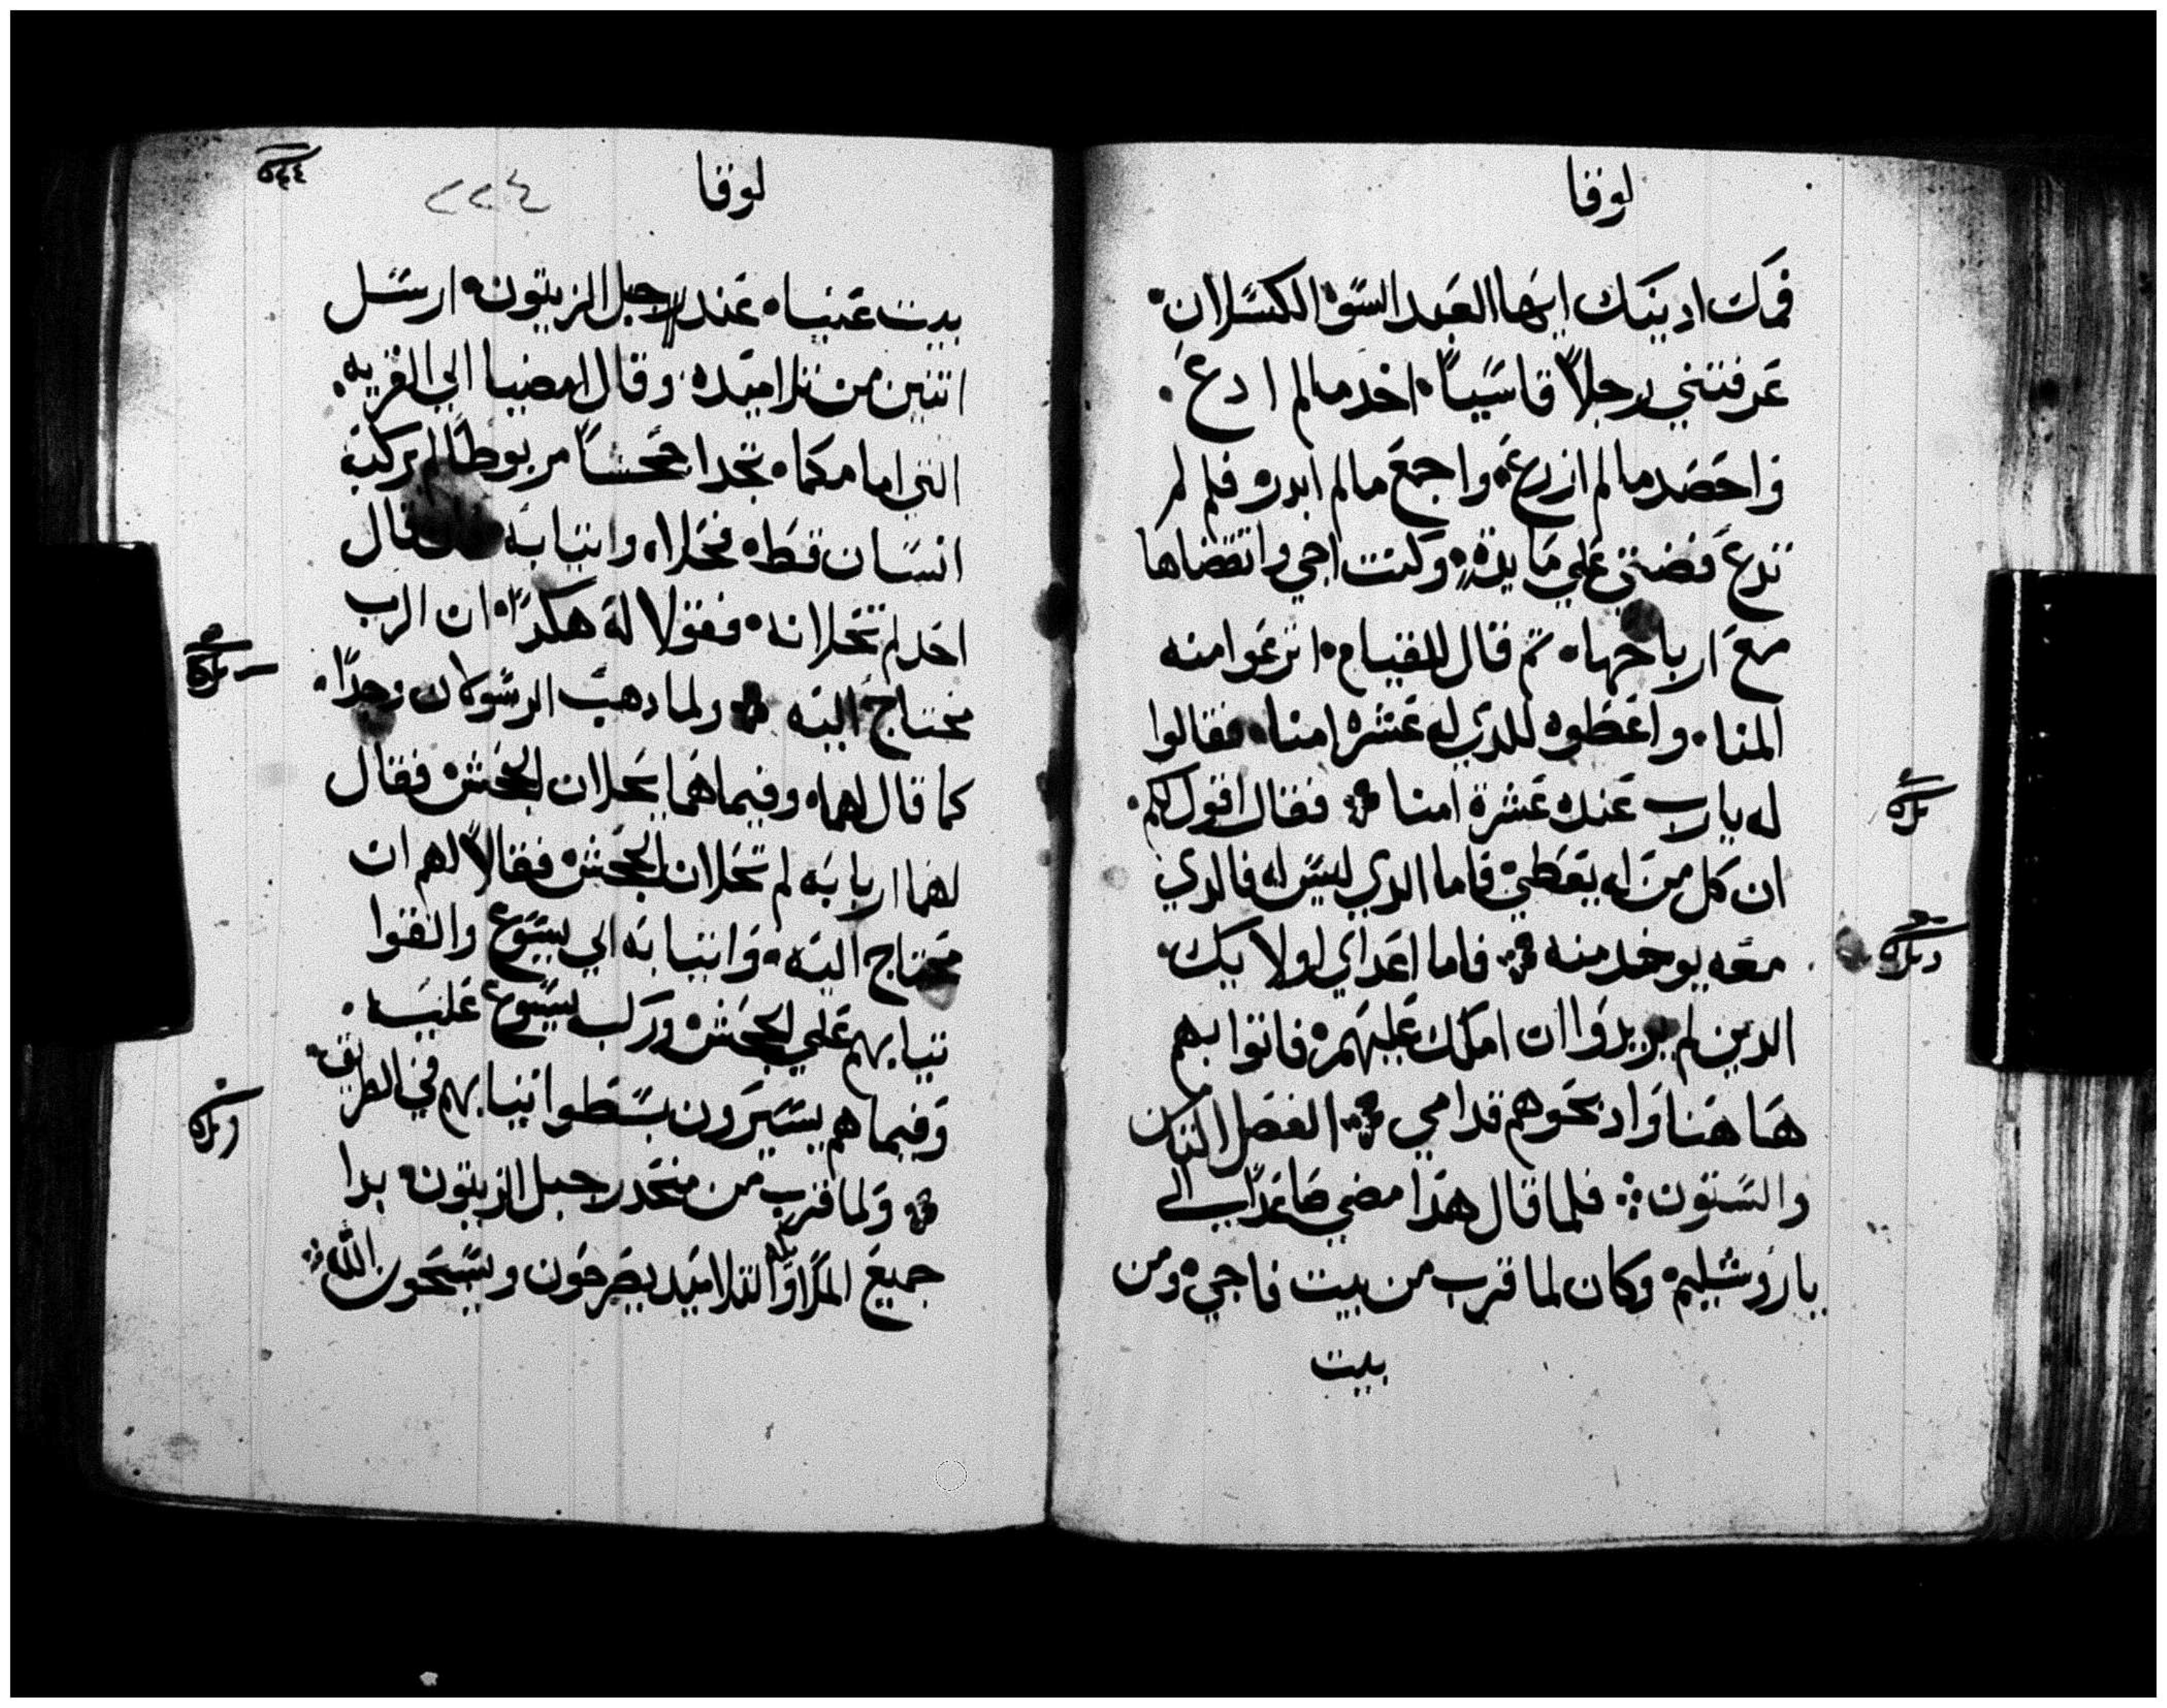 لوقا
فمك ادينك ايها العبد السو الكسلان
عرفتني رجلاً قاسياً اخد مالم ادع
واحصد مالم ازرع واجمع مالم ابدره فلم لم
تدع فضتي علي مايدة وكنت اجي واتقضاها
مع ارباحها ثم قال للقيام انزعوا منه
المنا واعطوه للدي له عشرة امنا فقالوا
له يارب عنده عشرة امنا فقال اقول لكم
ان كل من له يعطي فاما الدي ليس له فالدي
معه يوخد منه فاما اعداي اولايك
الدين لم يريدوا ان املك عليهم فاتوا بهم
هاهنا وادبحوهم قدامي الفصل التالت
والستون فلما قال هدا مضي صاعداً الي
ياروشليم وكان لما قرب من بيت فاجي ومن
بيت
لوقا
٢٢٤
بيت عنيا عند جبل الزيتون ارسل
اتنين من تلاميده وقال امضيا الي القريه
التي امامكما تجدا جحشاً مربوطاً لم يركبه
انسان قط فحلاه واتيا به قال
احد لم تحلانه فقولا له هكدا ان الرب
محتاج اليه ولما دهب الرسولان وجدا
كما قال لهما وفيما هما يحلان الجحش فقال
لهما اربابه لم تحلان الجحش فقالا لهم ان
محتاج اليه واتيا به الي يسوع والقوا
تيابهم علي الجحش وركب يسوع عليه
وفيما هم يسيرون بسطوا تيابهم في الطريق
ولما قرب من منحدر جبل الزيتون بدا
جميع الملا والتلاميد يفرحون ويسبحون الله